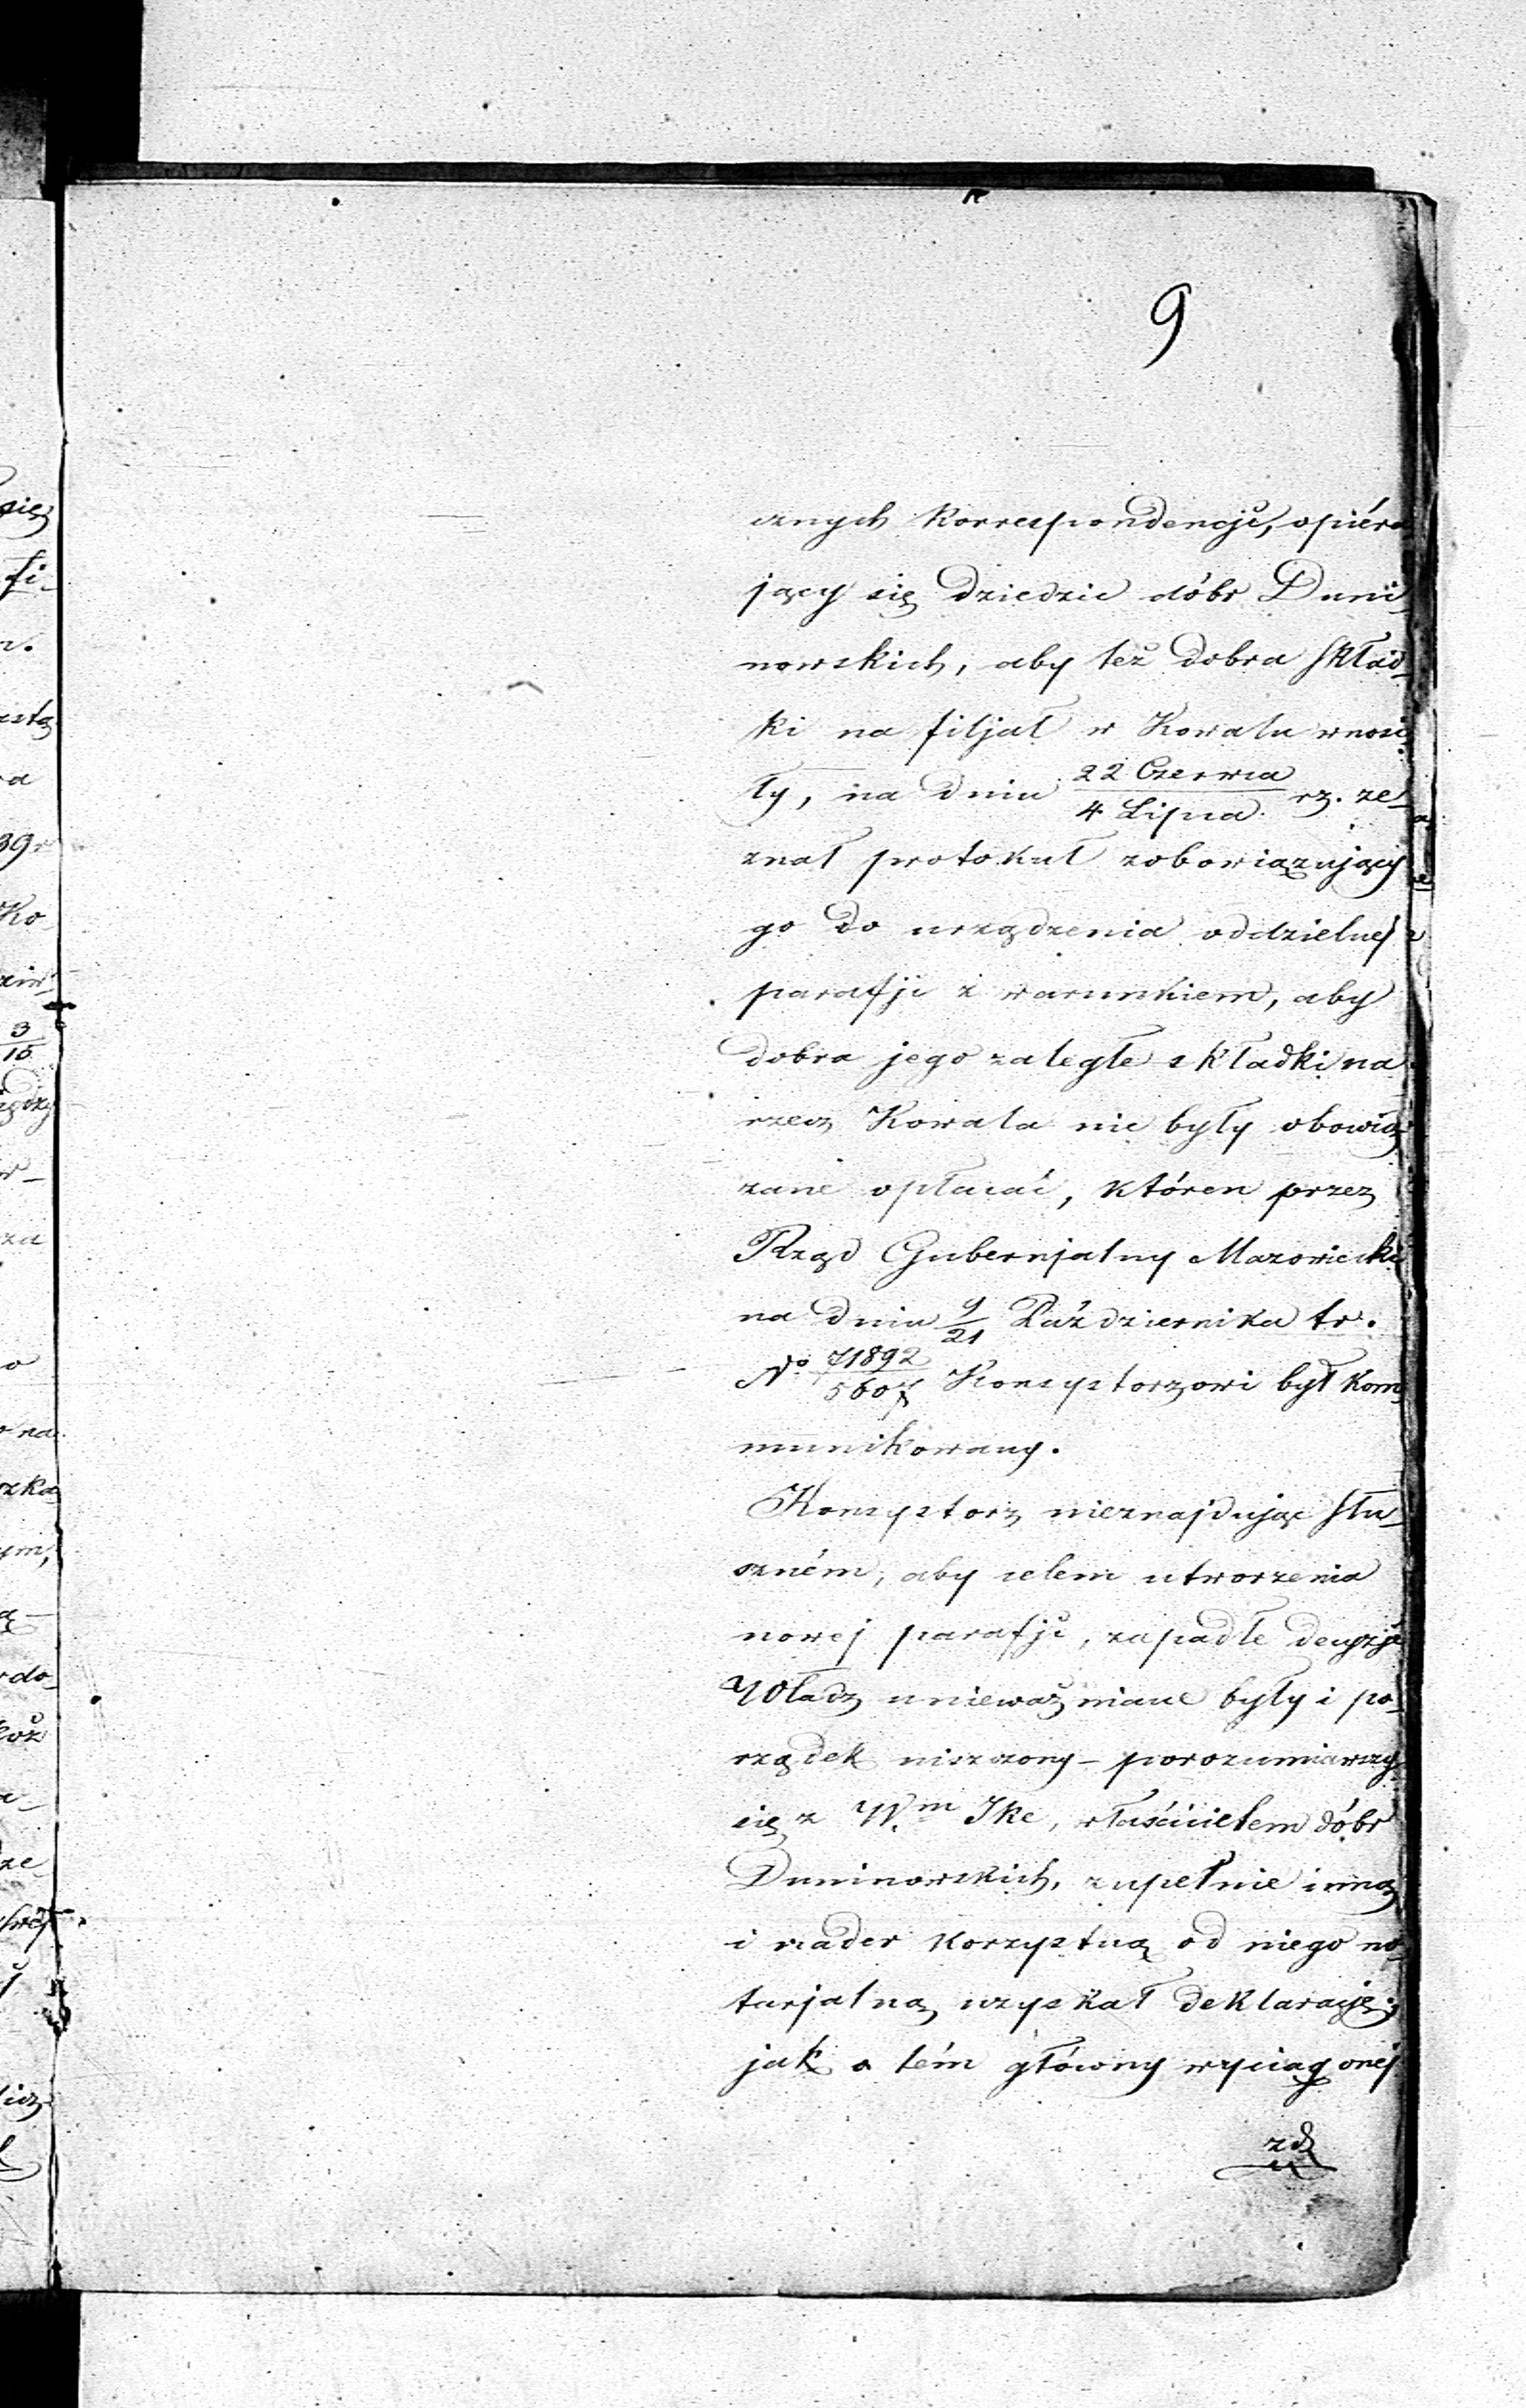 9
cznych Korrespondencji, opiéra
jący się Dziedzic dóbr Duni
nowskich, aby też dobra skład
ki na filjał w Kowalu wnosi
ły, na dniu 22 Czerwca / 4 Lipca rz. ze
znał protokuł zobowiązujący
go do urządzenia oddzielnej
parafji z warunkiem, aby
dobra jego zaległe składki na
rzecz Kowala nie były obowią
zane opłacać, któren przez
Rząd Gubernjalny Mazowiecki
na dniu 9/21 Października tr.
No 71892/5607 Konsystorzowi był kom
munikowany.
Konsystorz nieznajdując słu
szném, aby celem utworzenia
nowej parafji, zapadłe decyzje
Władz unieważniane były i po
rządek niszczony – porozumiawszy
się z W.m Ike, właścicielem dóbr
Duninowskich, zupełnie inną
i nader korzystną od niego no
tarjalną uzyskał deklaracje;
jak o tém główny wyciąg onej
zd
się
fi-
n.
39r
Ko
3/15
w-
za
o na
szka
ym,
do
że